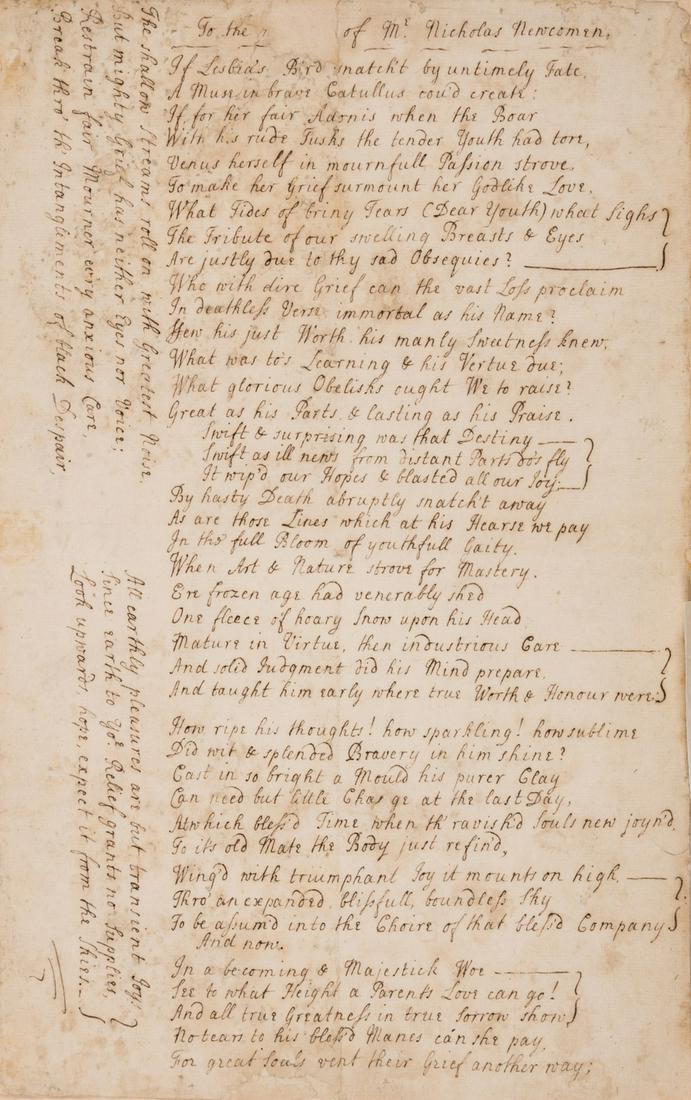 To the of Mr. Nicholas Newcomen.
If Lesbia's Bird snatch't by untimely Fate,
A Muse in brave Catullus cou'd create:
If for her fair Adonis when the Boar
With his rude Tusks the tender Youth had tore,
Venus herself in mournfull Passion strove,
To make her Grief surmount her Godlike Love.
What Tides of briny Tears (Dear Youth) what Sighs
The Tribute of our swelling Breasts & Eyes
Are justly due to thy sad Obsequies?
Who with dire Grief can the vast Loss proclaim
In deathless Verse immortal as his Name?
Yew his just Worth his manly Sweetness knew,
What was to's Learning & his Vertue due;
What glorious Obelisks ought We to raise?
Great as his Parts & lasting as his Praise.
Swift & surprising was that Destiny
Swift as ill news from distant Parts do's fly
It wip'd our Hopes & blasted all our Joy.
By hasty Death abruptly snatch't away
As are those Lines which at his Hearse we pay
In the full Bloom of youthfull Gaity.
When Art & Nature strove for Mastery.
Ere frozen age had venerably shed
One fleece of hoary Snow upon his Head
Mature in Virtue, then industrious Care
And solid Judgment did his Mind prepare,
And taught him early where true Worth & Honour were.
How ripe his thoughts! how sparkling! how sublime
Did wit & splended Bravery in him shine?
Cast in so bright a Mould his purer Clay
Can need but little Change at the last Day,
At which bless'd Time when th' ravish'd Souls new joyn'd
To it's old Mate the Body just refin'd,
Wing'd with triumphant Joy it mounts on high,
Thro' an expanded, blissfull, boundless Sky
To be assum'd into the Choire of that bless'd Company
And now.
In a becoming & Majestick Woe
See to what Height a Parents Love can go!
And all true Greatness in true Sorrow show
No tears to his bless'd Manes can she pay,
For great Souls vent their Grief another way;
The shallow Streams roll on with Greatest Noise
But mighty Grief has neither Eyes nor Voice;
Restrain fair Mourner ev'ry anxious Care,
Break thro' th' Intanglements of black Despair,
All earthly pleasures are but transient Joys
Since earth to yor. Relief grants no Supplies,
Look upwards, hope, expect it from the Skies.